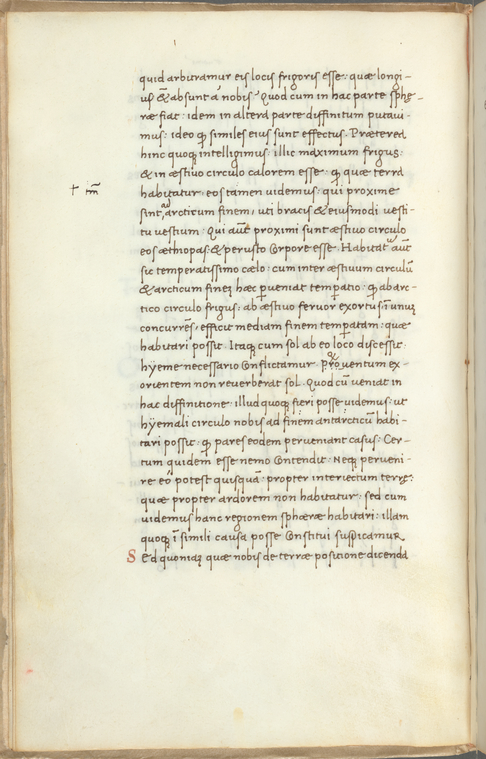 quid arbitramur eis locis frigoris esse: quæ longi-
us & absunt a nobis? Quod cum in hac parte sphę-
ræ fiat: idem in altera parte diffinitum putaui-
mus: ideo ꝙ similes eius sunt effectus. Præterea
hinc quoq; intelligimus: illic maximum frigus:
& in æstiuo circulo calorem esse: ꝙ quæ terra
habitatur: eos tamen uidemus: qui proxime
sint, arcticum finem, uti bracis & eiusmodi uesti-
tu uestium: Qui aut̃ proximi sunt æstiuo circulo
eos æthiopas: & perusto corpore esse. Habitat̃ aut̃
sic temperatissimo cælo: cum inter æstiuum circulũ
& arcticum finez hæc ꝑueniat temp̱atio: ꝙ ab arc-
tico circulo frigus: ab æstiuo feruor exortus ĩ unuz
concurrẽs: efficit mediam finem temp̱atam: quæ
habitari possit. Itaq; cum sol ab eo loco discessit:
hyeme necessario conflictamur: uentum ex-
orientem non reuerberat sol. Quod cũ ueniat in
hac diffinitione: illud quoq; fieri posse uidemus: ut
hÿemali circulo nobis ad finem antarcticũ habi-
tari possit: ꝙ pares eodem perueniant casus: Cer-
tum quidem esse nemo contendit: Neq; perueni-
re eo potest quisquã: propter interiectum terrę:
quæ propter ardorem non habitatur: sed cum
uidemus hanc regionem sphæræ habitari: illam
quoq; ĩ simili causa posse constitui suspicamur
Sed quoniaz quæ nobis de terræ positione dicenda